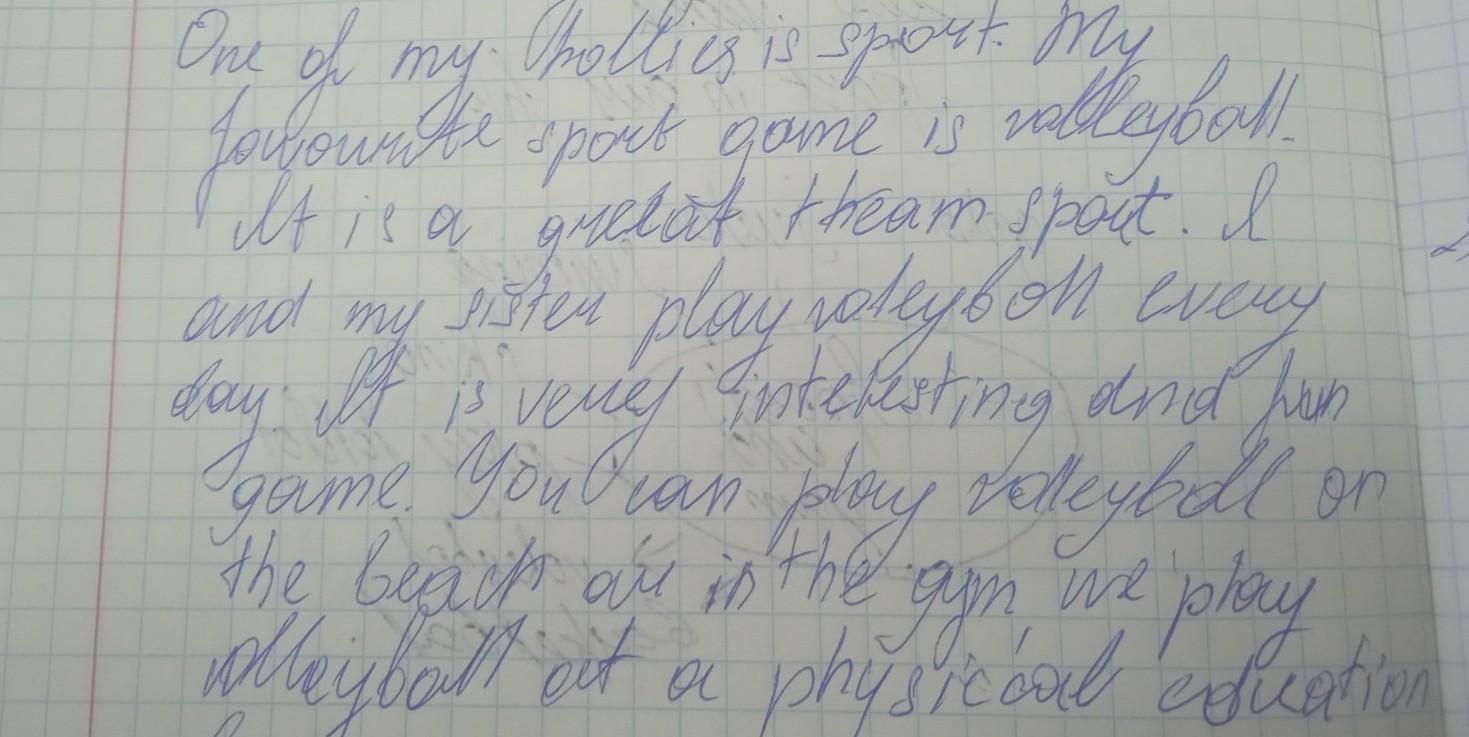 One of my hobbies is sport. My
favourite sport game is volleyball.
It is a great theam sport. I
and my sister play voleyball every
day. It is very interesting and fun
game. You can play volleyball on
the beach or in the gym we play
volleyball at a physical education